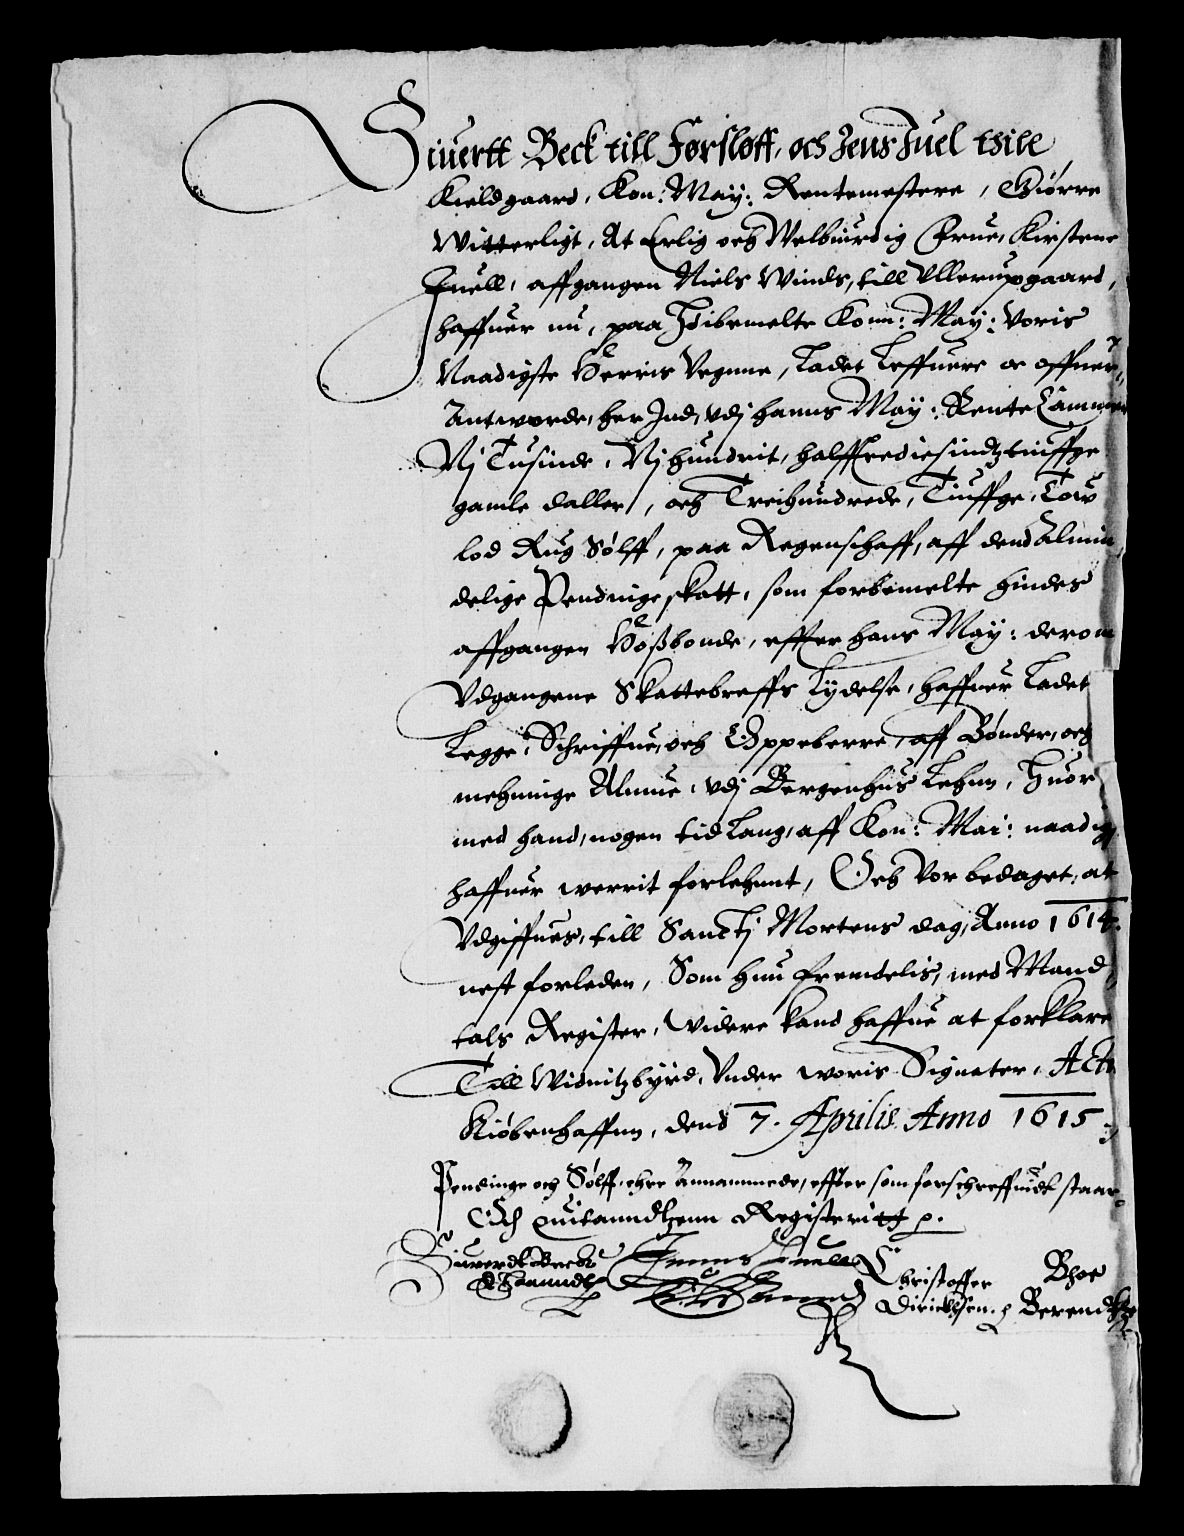 Siuertt Beck till Førsløff, och Jens Juel thill
Kieldgaard, Kon: May: Rentemestere, Giørre
Witterligt, At Erlig och Welbiurdig Frue, Kirstene
Juell, affgangen Niels Winds, till Vllerupgaard,
haffuer nu, paa Høibemelte Konn: May: Voris
Naadigste Herris Vegnne, Ladet Leffuere oc offuer
Antworde, her Ind, vdj hanns May: Rente Cammer
Nj Tusinde, Nj hundrit, halfftrediesindztiuffge
gamle daller, och Treihundrede, Tiuffge, Tow
lod Rug Sølff, paa Regenschaff, aff dend Almin
delige Pendinge skatt, som forbemelte hindes
affgangen Hoßbonde, effter hans May: derom
Vdgangene Skattebreffs Lydelse, haffuer Ladet
Legge, Schriffue, och Oppeberre, aff Bønder, och
mehninge Almue, vdj Bergenhus Lehnn, Huor
med hand, nogen tid lang, aff Kon: Mai: naadigst
haffuer werrit forlehnnt, Och Vor bedaget, at
Vdgiffues, till Sanctj Mortens dag, Anno 1614.
nest forleden, Som hun fremdelis, med Mand
tals Register, widere kand haffue at forklare
Till Widnitzbyrd, Vnder woris Signeter, Actum
Kiøbenhaffnn, dend 7. Aprilis Anno 1615.
Pendinge och Sølff, ehre Annammede, effter som forschreffuidt staar
Och quitanndtzenn Registeritt
Siuerdt Beck
Jenns Juell
Christoffer
Dirichsen
Bhoe
Berendtz